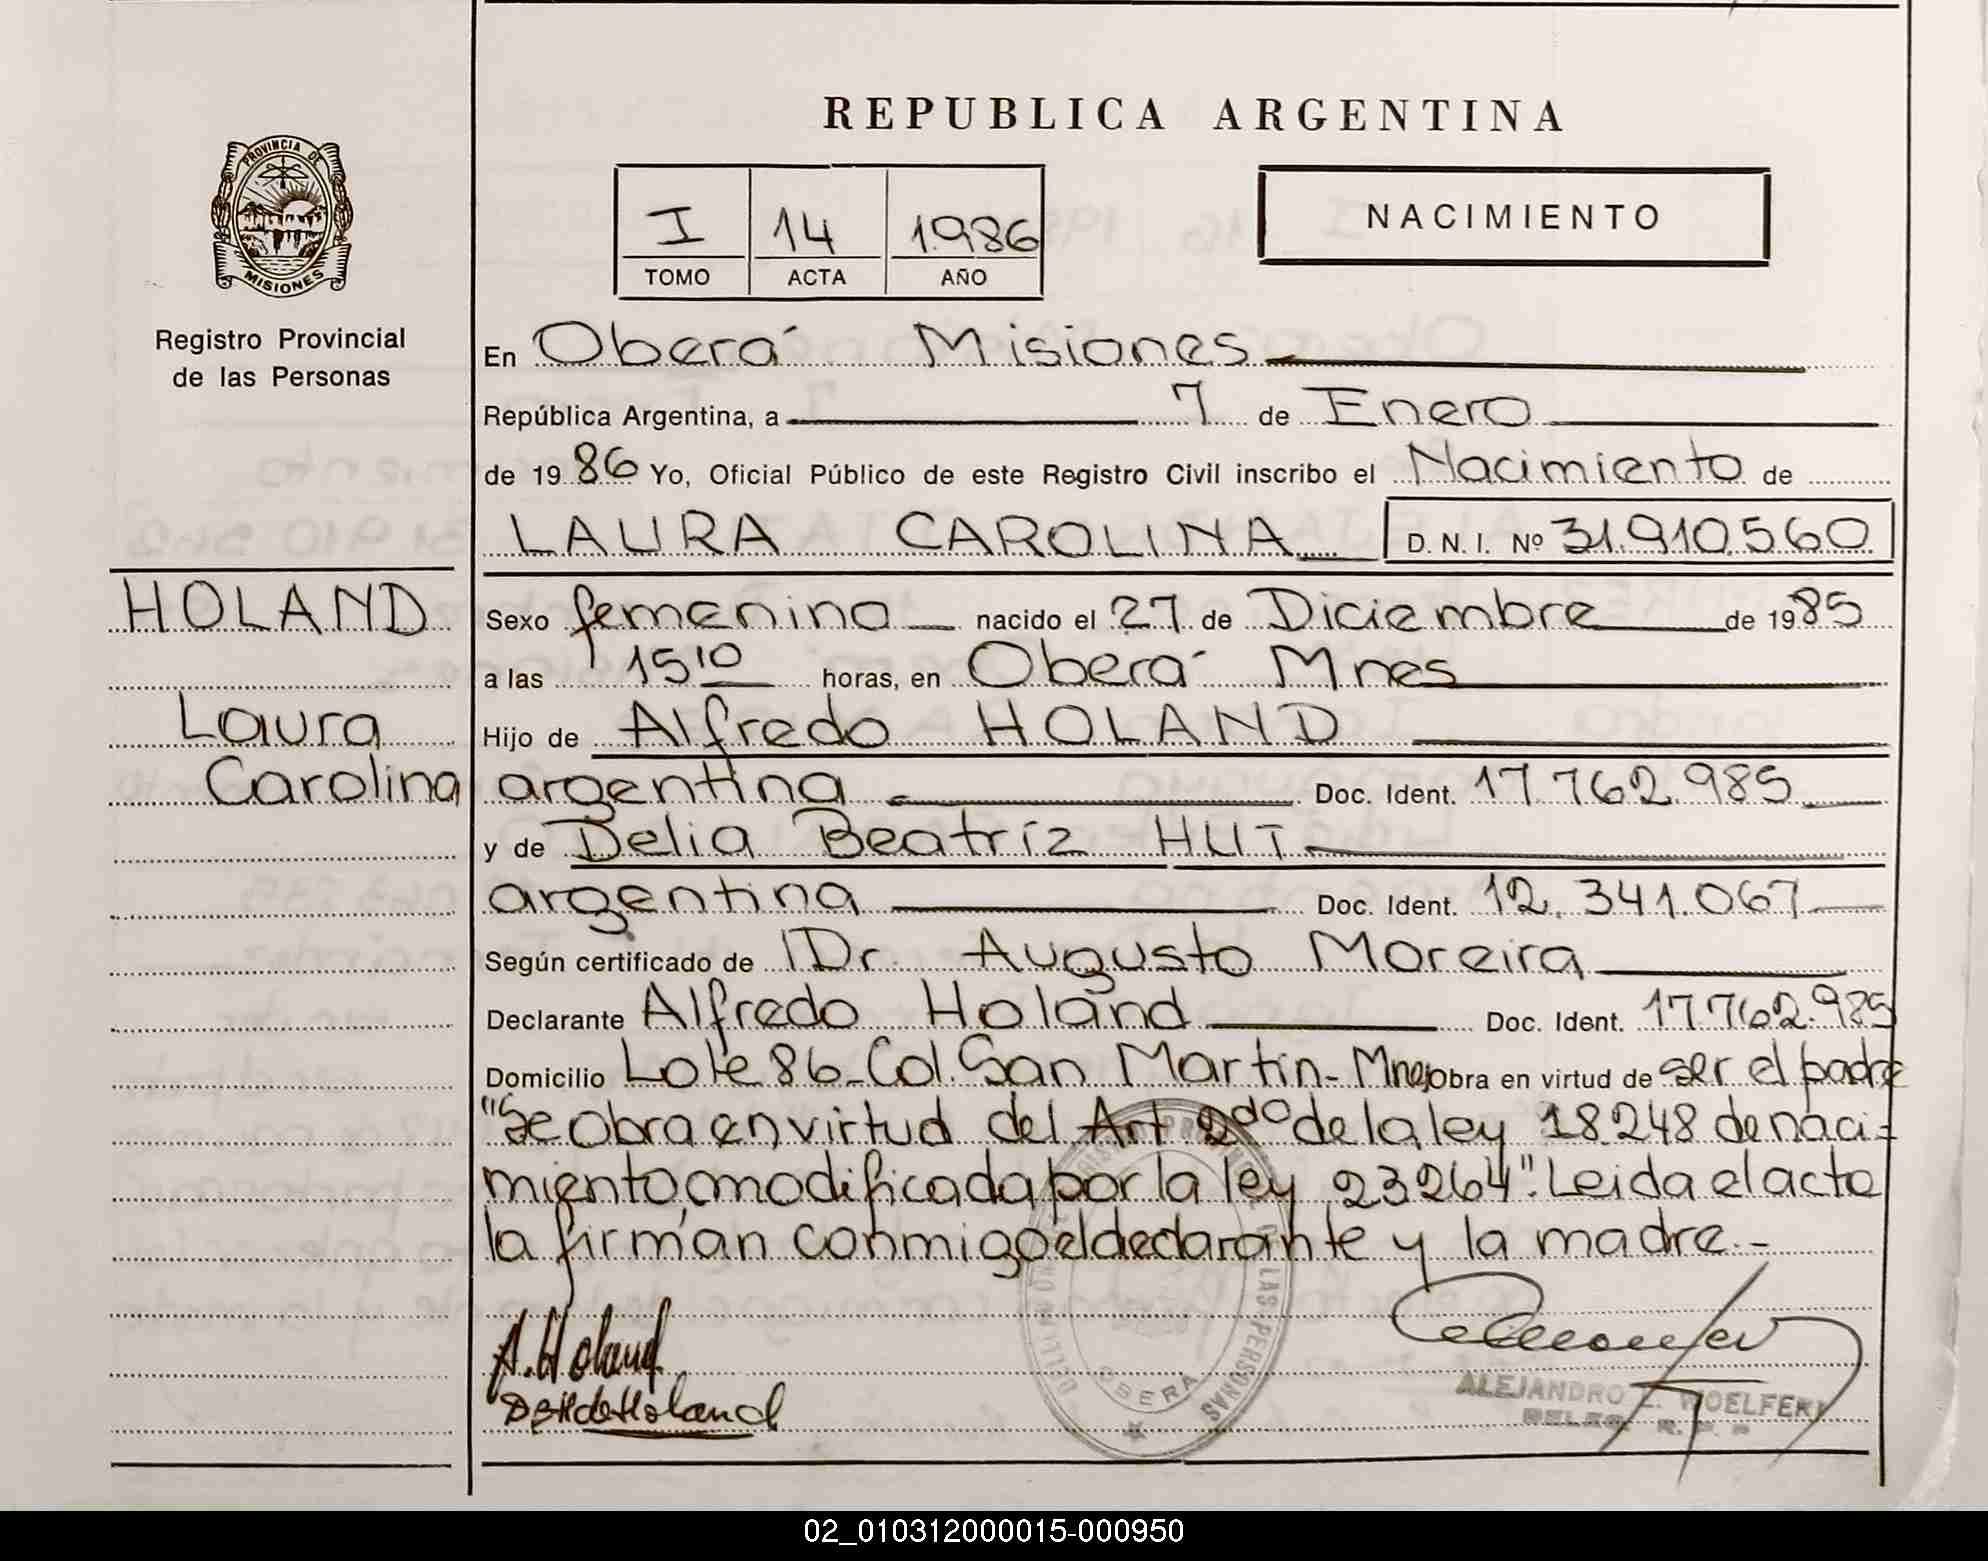 REPUBLICA ARGENTINA
PROVINCIA DE
MISIONES
Registro Provincial
de las Personas
I 14 1986
TOMO ACTA AÑO
NACIMIENTO
En Oberá Misiones
República Argentina, a 7 de Enero
de 1986 Yo, Oficial Público de este Registro Civil inscribo el Nacimiento de
LAURA CAROLINA D. N. I. Nº 31.910.560
HOLAND
Laura
Carolina
Sexo femenino nacido el 27 de Diciembre de 1985
a las 15 10 horas, en Oberá Mnes
Hijo de Alfredo HOLAND
argentina Doc. Ident. 17.762.985
y de Delia Beatríz HUT
argentina Doc. Ident. 12.341.067
Según certificado de Dr. Augusto Moreira
Declarante Alfredo Holand Doc. Ident. 17.762.985
Domicilio Lote 86-Col. San Martín-Mnes obra en virtud de ser el padre
"Se obra en virtud del Art 2do de la ley 18.248 de naci-
miento, modificada por la ley 23264". Leida el acta
la firman conmigo el declarante y la madre.-
A. Holand
de Holand
OBERA
LAS PERSONAS
ALEJANDRO
R. P. P
02_010312000015-000950